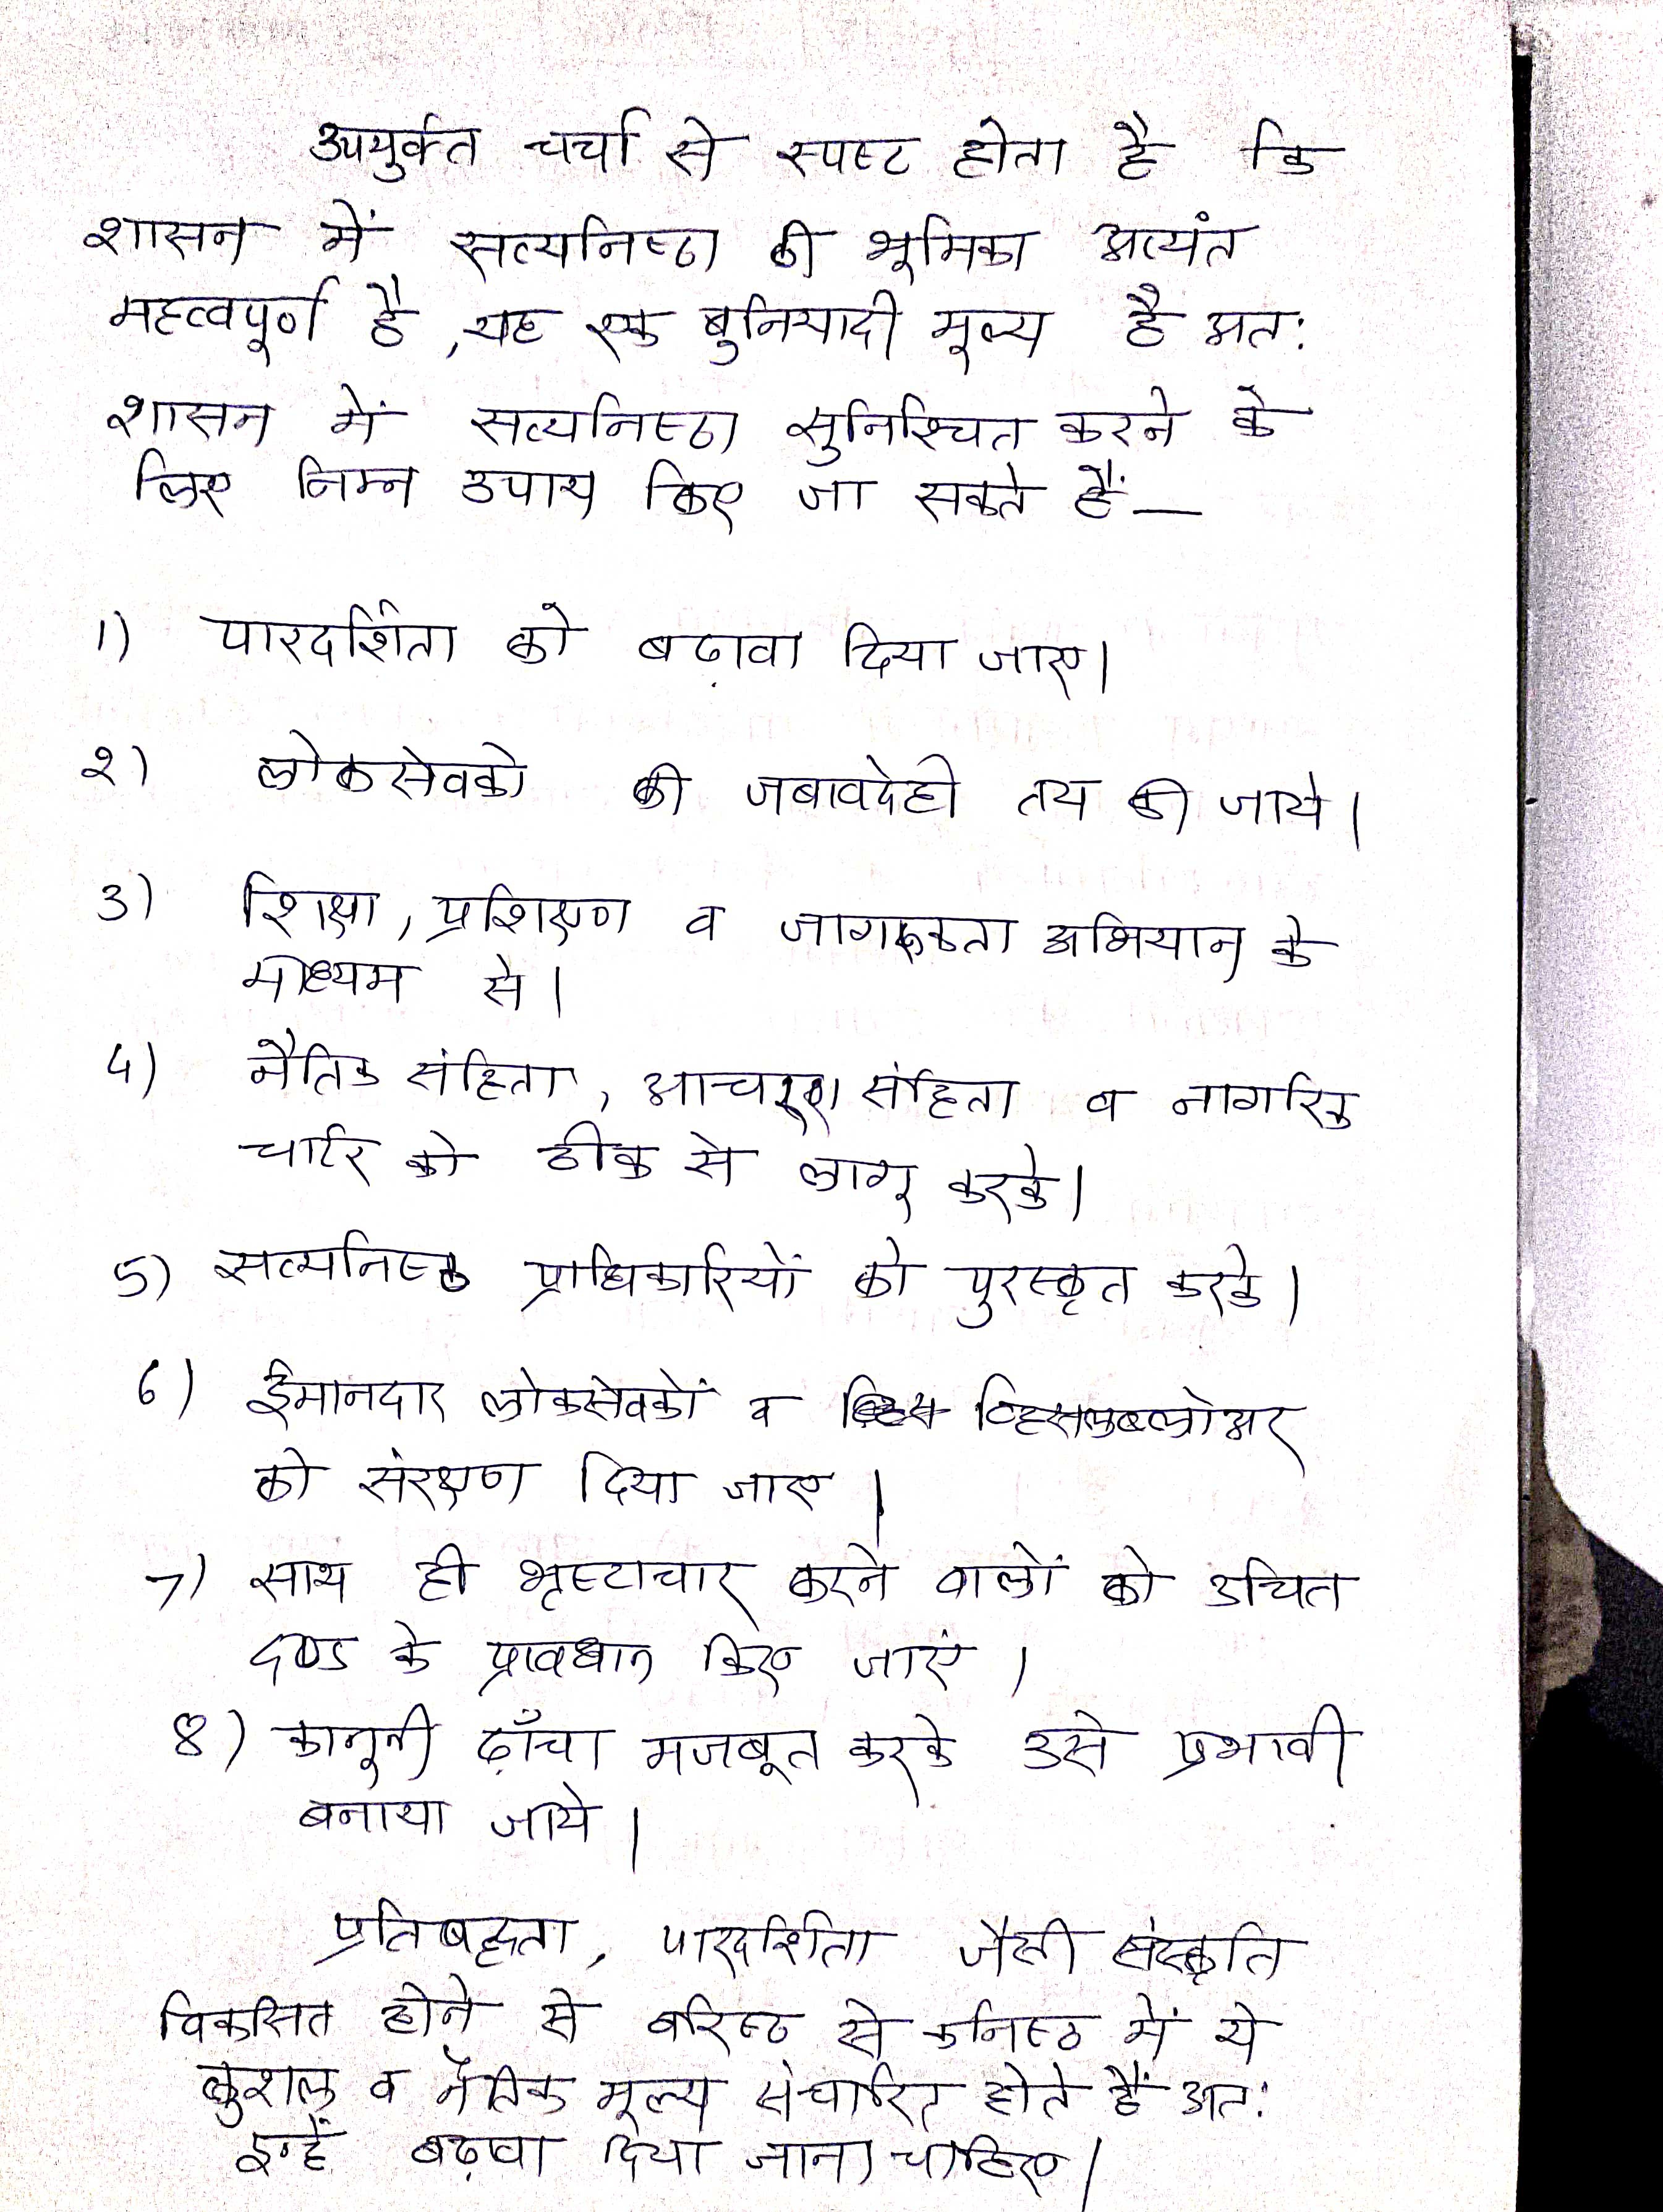 उपयुर्क्त चर्चा से स्पष्ट होता है कि
शासन में सत्यनिष्ठा की भूमिका अत्यंत
महत्वपूर्ण है, यह एक बुनियादी मूल्य है अतः
शासन में सत्यनिष्ठा सुनिश्चित करने के
लिए निम्न उपाय किए जा सकते हैं—
1) पारदर्शिता को बढ़ावा दिया जाए।
२) लोकसेवको की जबावदेही तय की जाये।
3) शिक्षा, प्रशिक्षण व जागरूकता अभियान के
माध्यम से।
4) नैतिक संहिता, आचरण संहिता व नागरिक
चार्टर को ठीक से लागू करके।
5) सत्यनिष्ठ प्राधिकारियों को पुरस्कृत करके।
6) ईमानदार लोकसेवकों व व्हिसलब्लोअर
को संरक्षण दिया जाए।
7) साथ ही भृष्टाचार करने वालों को उचित
दण्ड के प्रावधान किए जाएं।
8) कानूनी ढ़ाँचा मजबूत करके उसे प्रभावी
बनाया जाये।
प्रतिबद्धता, पारदर्शिता जैसी संस्कृति
विकसित होने से वरिष्ठ से कनिष्ठ में ये
कुशल व नैतिक मूल्य संचारित होते हैं अतः
इन्हें बढ़ावा दिया जाना चाहिए।